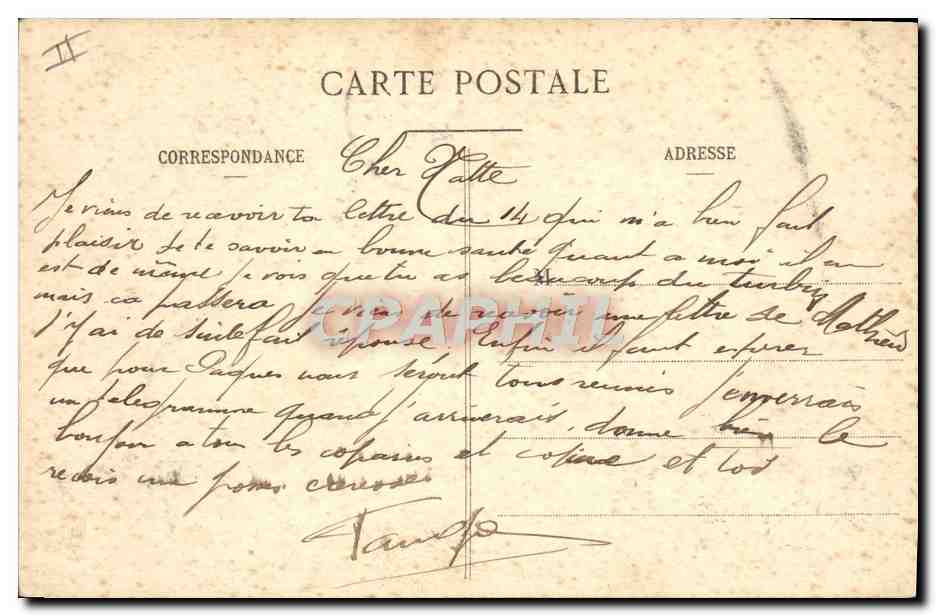 II
CARTE POSTALE
CORRESPONDANCE
ADRESSE
Cher
Je viens de recevoir ta lettre du 14 qui m'a bien fait
plaisir de te savoir en bonne sante quant a moi il en
est de même je vois que tu as beaucoup du turbin
mais ca passera je viens de recevoir une lettre de
j'y ai de suite fait réponse Enfin il faut esperer
que pour Paques nous seront tous reunis j'enverrais
un telegramme quand j'arriverais, donne bien le
bonjour a tou les copains et copine et toi
recois une
CPAPHIL